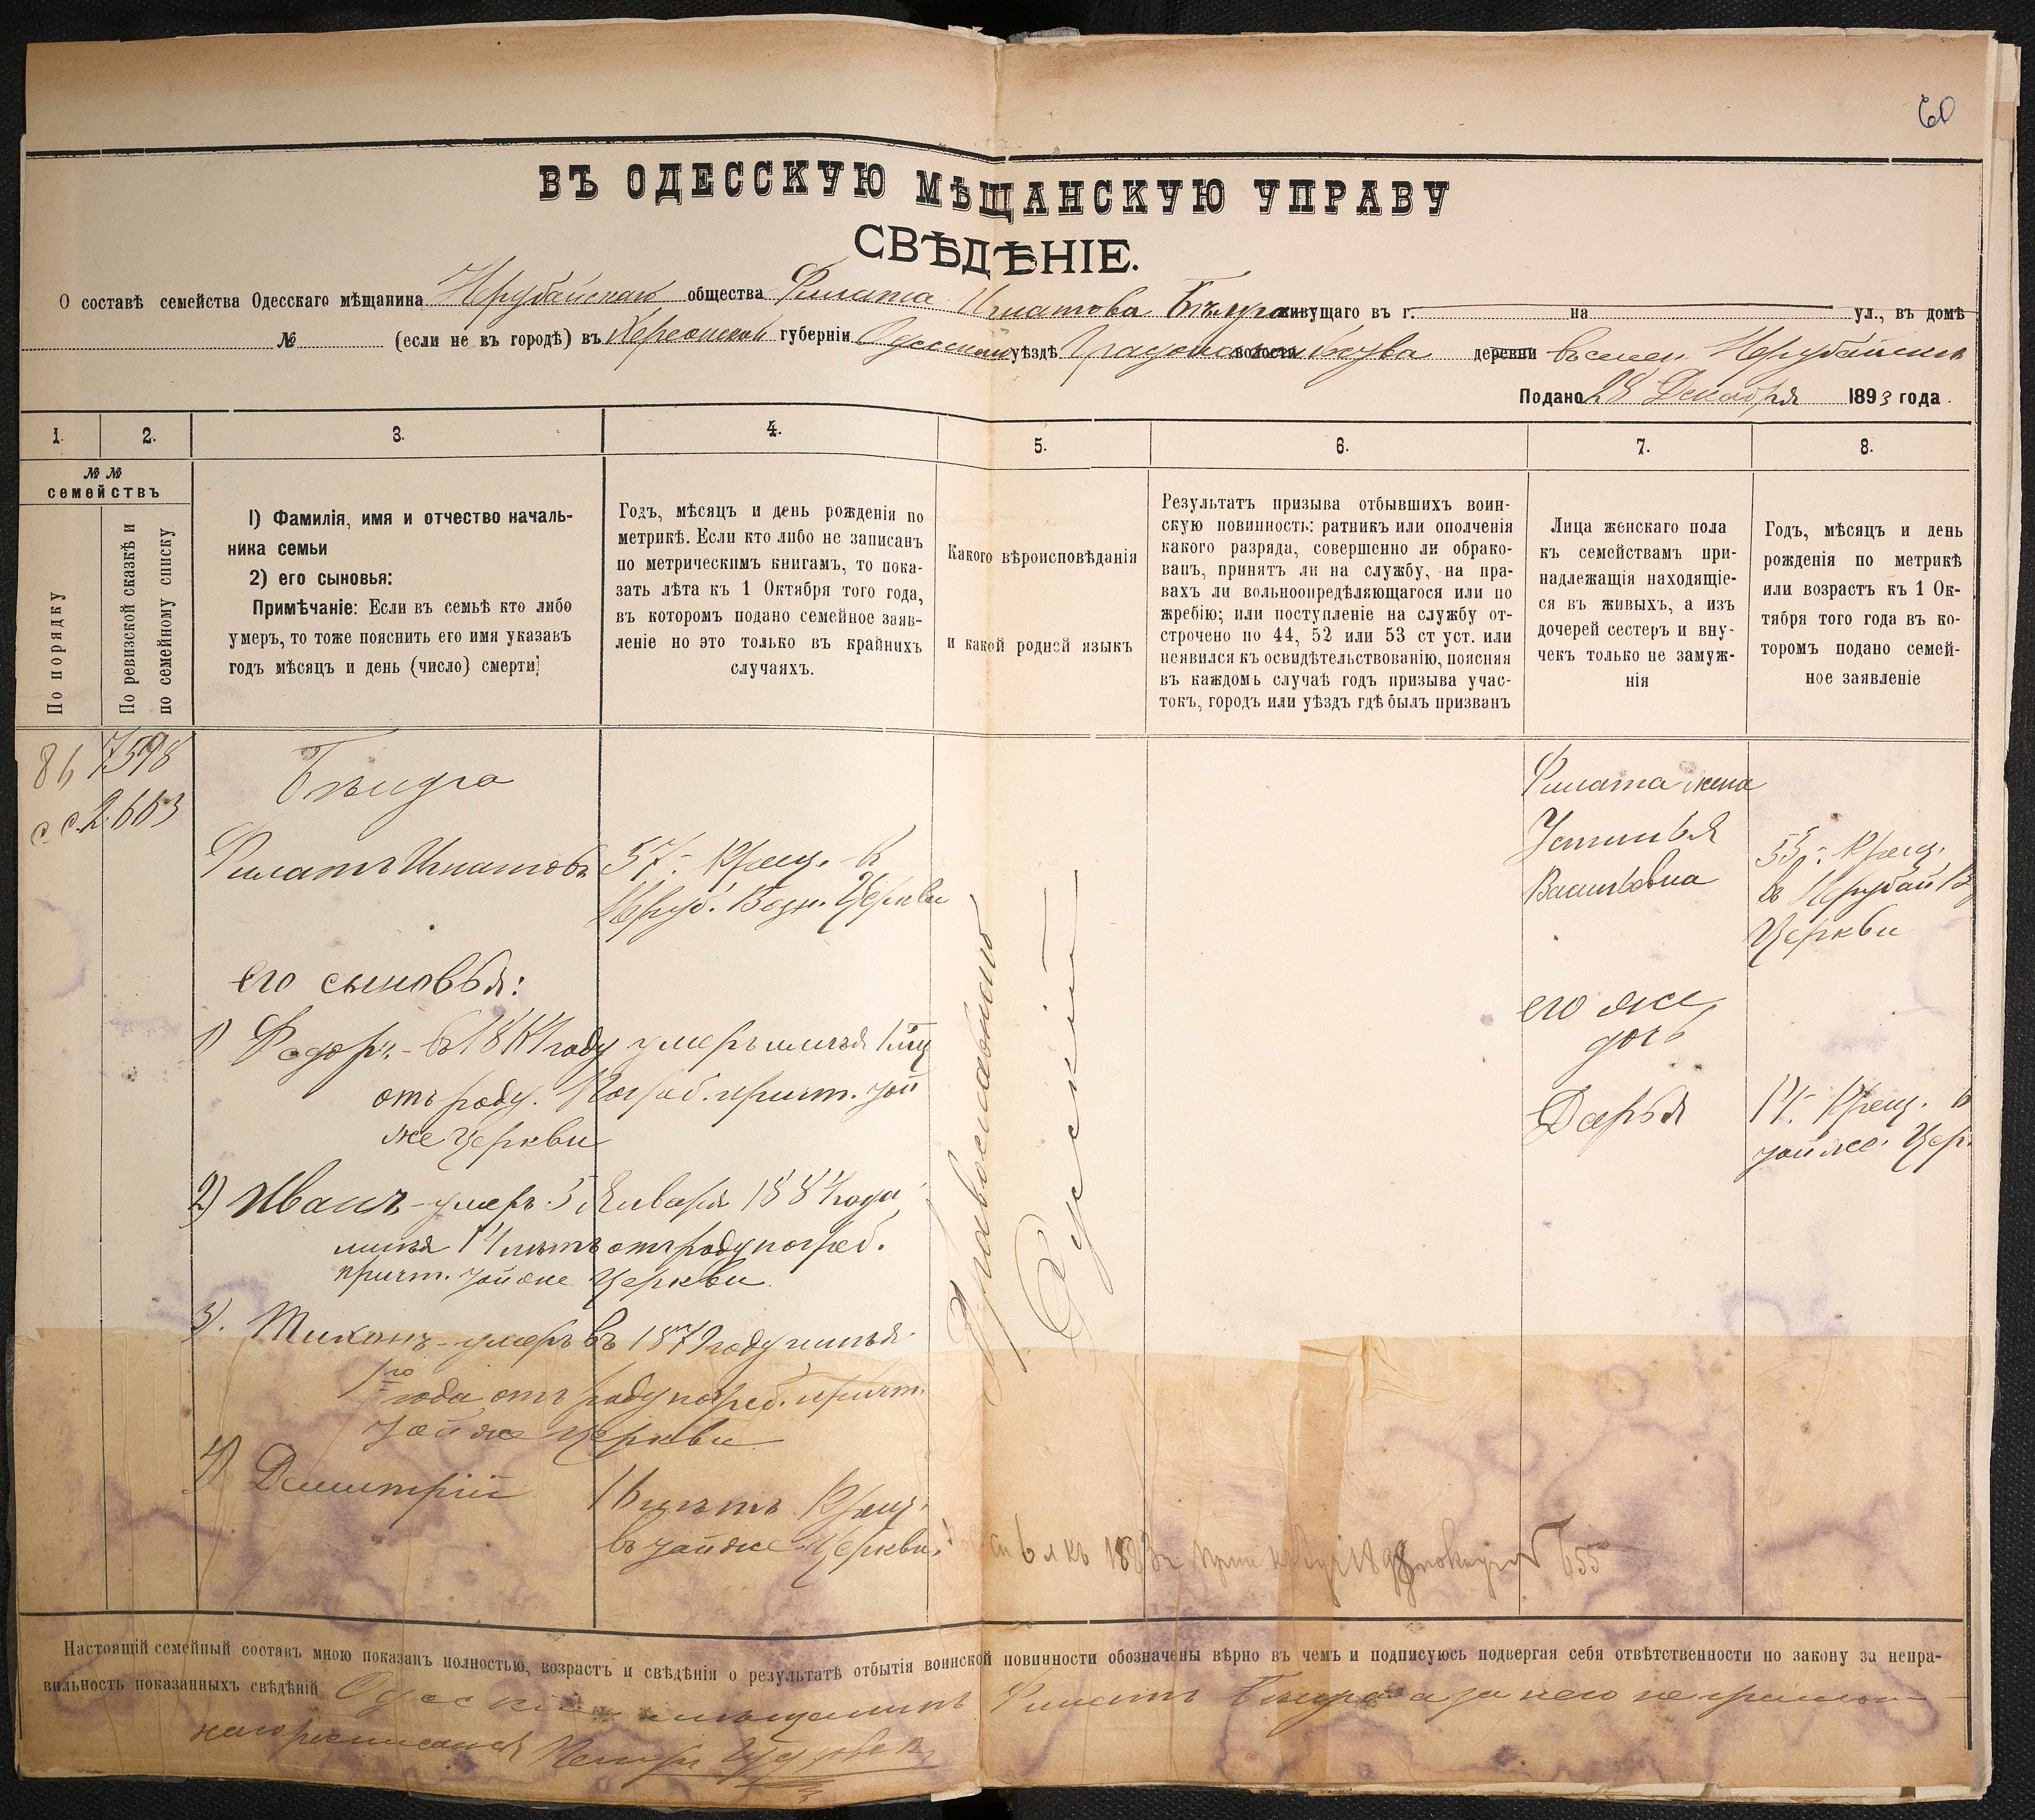 60
ВЪ ОДЕССКУЮ МѢЩАНСКУЮ УПРАВУ
СВѢДѢНІЕ.
О составѣ семейства Одесскаго мѣщанина Нерубайскаго общества Филата Игнатова живущаго въ г. на ул., въ домѣ
№ (если не въ городѣ) въ Херсонской губерніи Одесскомъ уѣздѣ волости деревни въ селен. Нерубайскомъ
Подано 28 Декабря 1893 года.
1. 2. 3. 4. 5. 6. 7. 8.
№ №
семействъ
По порядку
По ревизской сказкѣ и
по семейному списку
1) Фамилія, имя и отчество началь-
ника семьи
2) его сыновья:
Примѣчаніе: Если въ семьѣ кто либо
умеръ, то тоже пояснить его имя указавъ
годъ мѣсяцъ и день (число) смерти;
Годъ, мѣсяцъ и день рожденія по
метрикѣ. Если кто либо не записанъ
по метрическимъ книгамъ, то пока-
зать лѣта къ 1 Октября того года,
въ которомъ подано семейное заяв-
леніе но это только въ крайнихъ
случаяхъ.
Какого вѣроисповѣданія
и какой родной языкъ
Результатъ призыва отбывшихъ воин-
скую повинность: ратникъ или ополченія
какого разряда, совершенно ли обрако-
ванъ, принятъ ли на службу, на пра-
вахъ ли вольноопредѣляющагося или по
жребію; или поступленіе на службу от-
строчено по 44, 52 или 53 ст уст. или
неявился къ освидѣтельствованію, поясняя
въ каждомъ случаѣ годъ призыва учас-
токъ, городъ или уѣздъ гдѣ былъ призванъ
Лица женскаго пола
къ семействамъ при-
надлежащія находящіе-
ся въ живыхъ, а изъ
дочерей сестеръ и вну-
чекъ только не замуж-
нія
Годъ, мѣсяцъ и день
рожденія по метрикѣ
или возрастъ къ 1 Ок-
тября того года въ ко-
торомъ подано семей-
ное заявленіе
7598
с. с. 2663
Филатъ Игнатовъ
57. Крещ. в
Неруб. Возн. Церкви
его сыновья:
1) Федоръ - въ году умеръ имѣя 1 мѣц
отъ роду. Погреб. причт. той
же Церкви
2) Иванъ - умеръ 5 Января года
имѣя 14 лѣтъ отъ роду погреб.
причт. той же Церкви.
3). Тихонъ - умеръ въ 1879 году имѣя
1го года отъ роду погреб. причт.
той же Церкви
4) Димитрій
16 лѣтъ Крещ.
въ той же Церкви.
Православнаго
Русскій
Филата жена
Устинья
Васильевна
55. Крещ.
въ Нерубай В
Церкви
его же
дочь
Дарья
14. Крещ. в
той же Цер.
655
Настоящій семейный составъ мною показанъ полностью, возрастъ и свѣдѣнія о результатѣ отбытія воинской повинности обозначены вѣрно въ чемъ и подписуюсь подвергая себя отвѣтственности по закону за непра-
вильность показанныхъ свѣдѣній Одесскій мѣщанинъ Филатъ а за него неграмот-
наго росписался